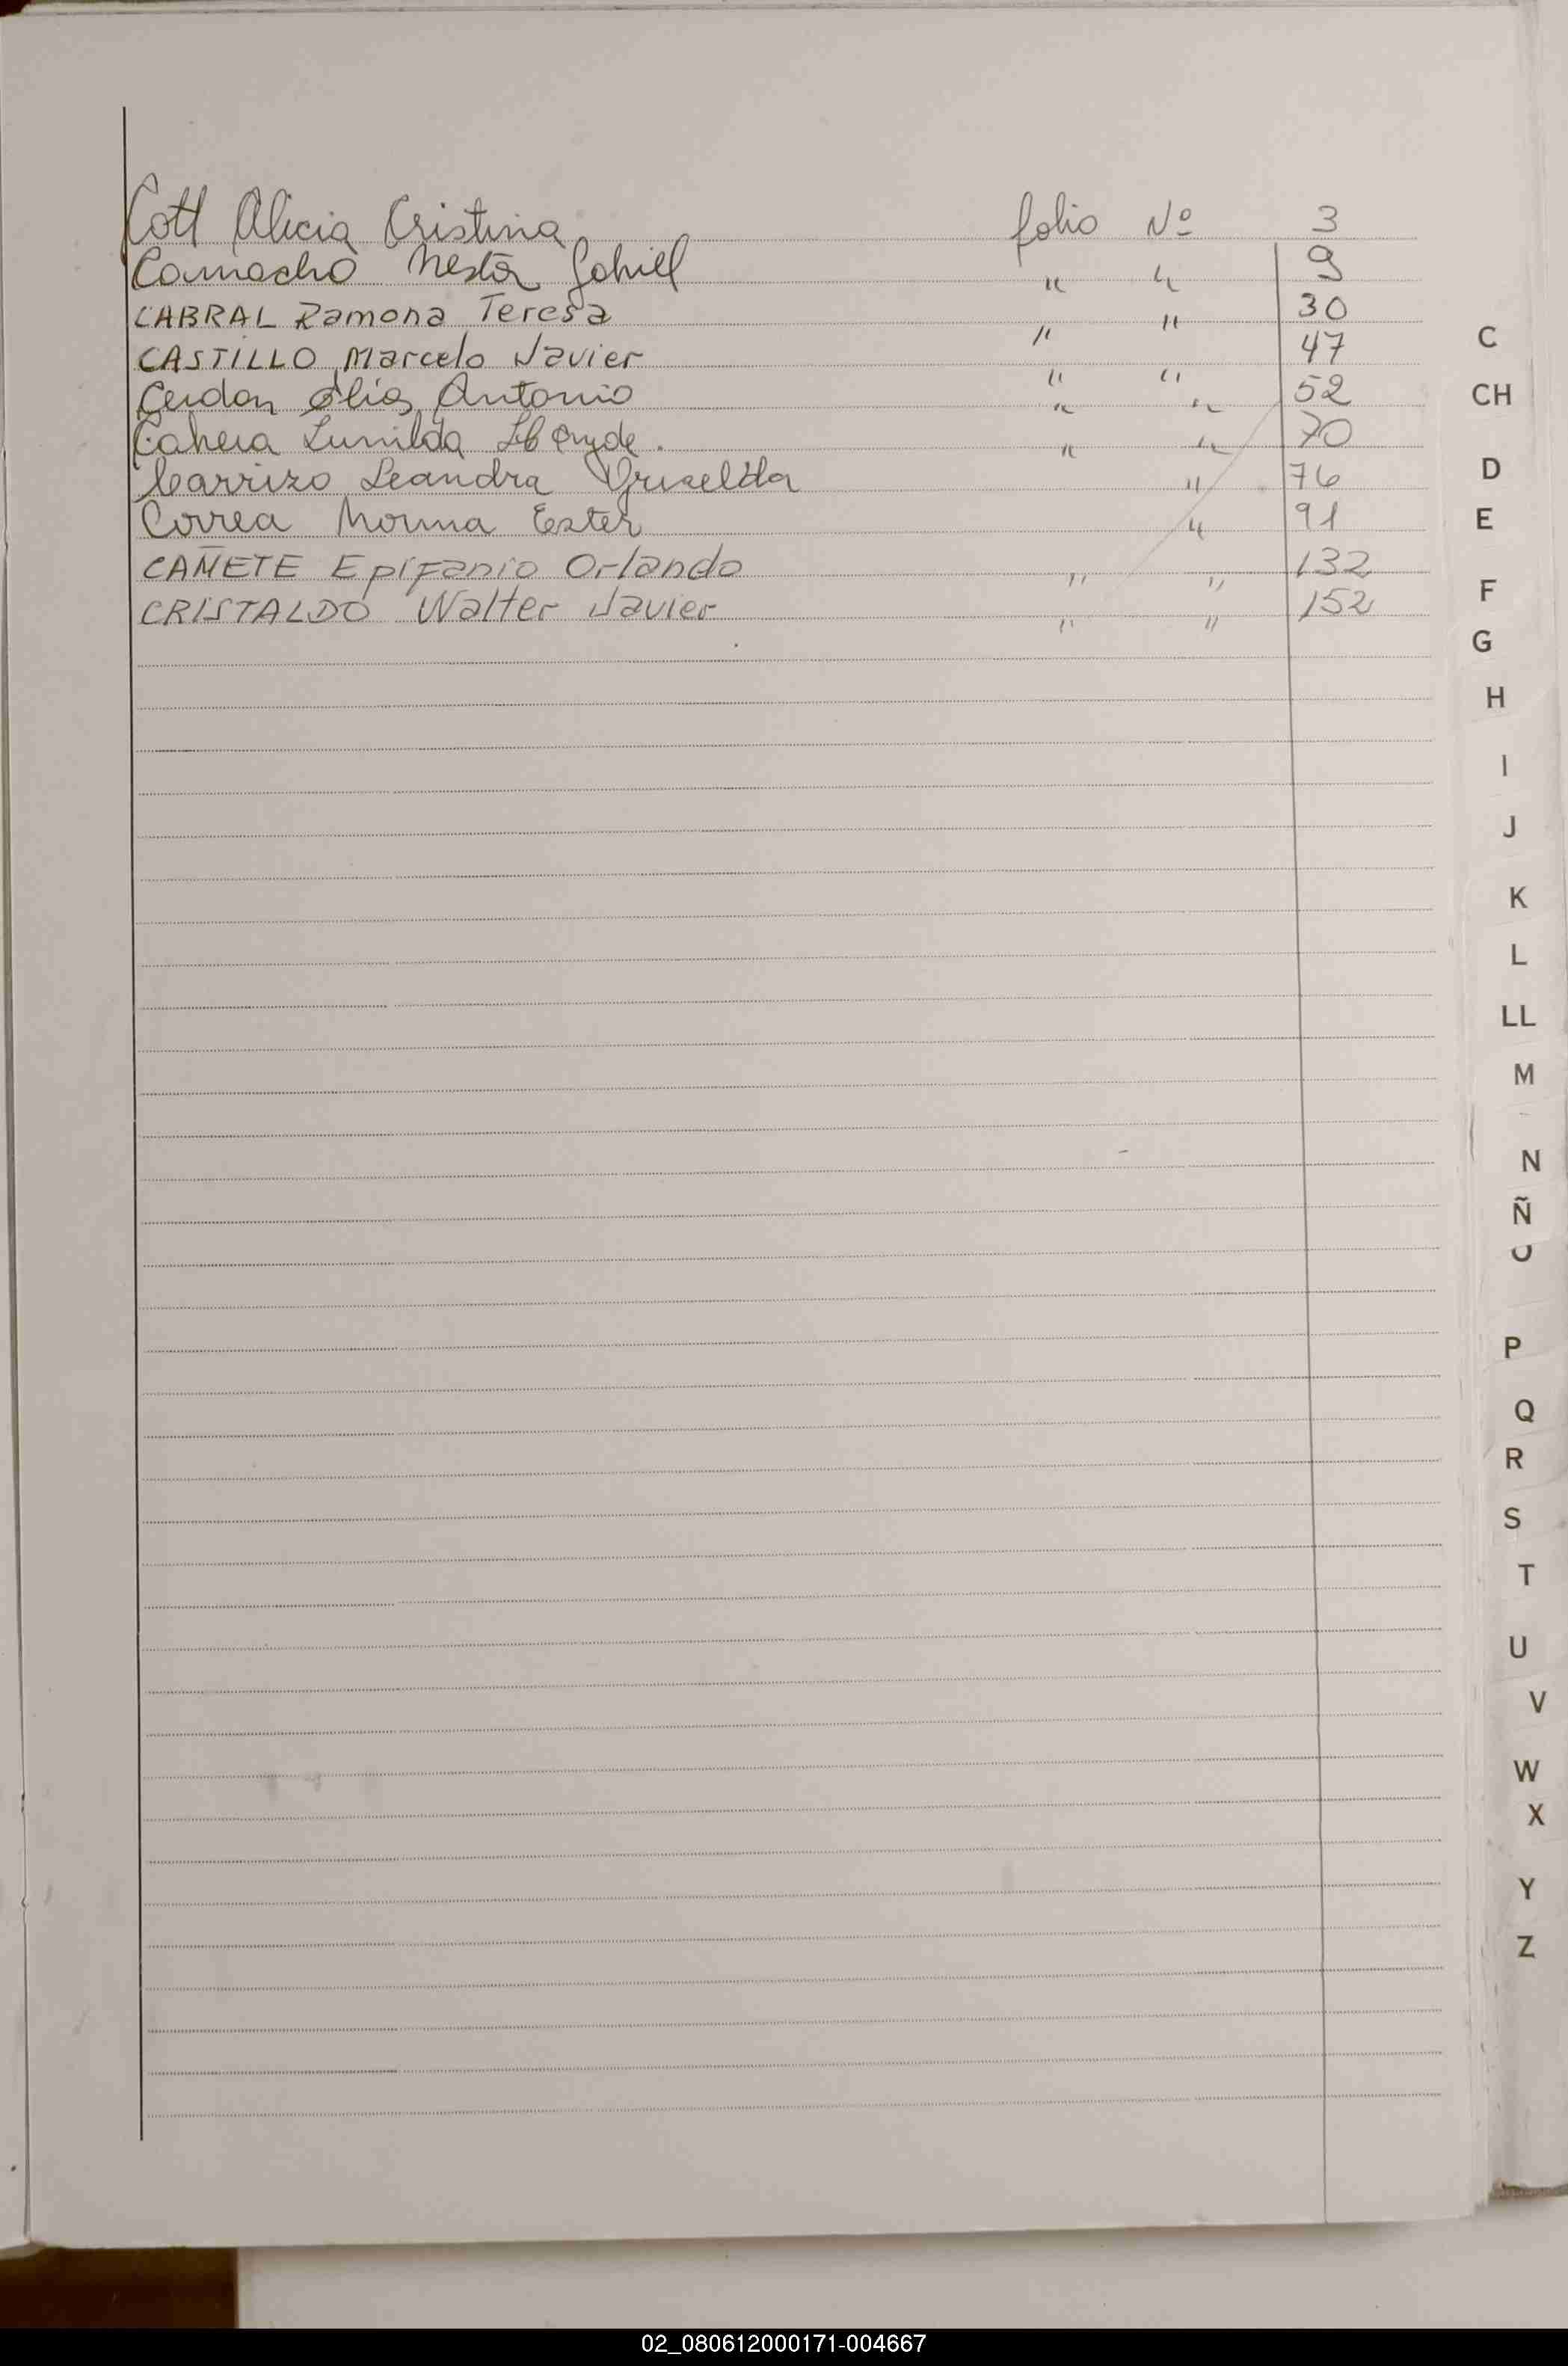 Cott Alicia Cristina folio Nº 3
Camacho Nestor Gabriel " " 9
CABRAL Ramona Teresa " " 30
CASTILLO Marcelo Javier " " 47
Cerdan Elias Antonio " " 52
Cabrera Lunilda " " 70
Carrizo Leandra Griselda " 76
Correa Norma Ester " 91
CAÑETE Epifanio Orlando " " 132
CRISTALDO Walter Javier " " 152
C
CH
D
E
F
G
H
I
J
K
L
LL
M
N
Ñ
O
P
Q
R
S
T
U
V
W
X
Y
Z
02_080612000171-004667